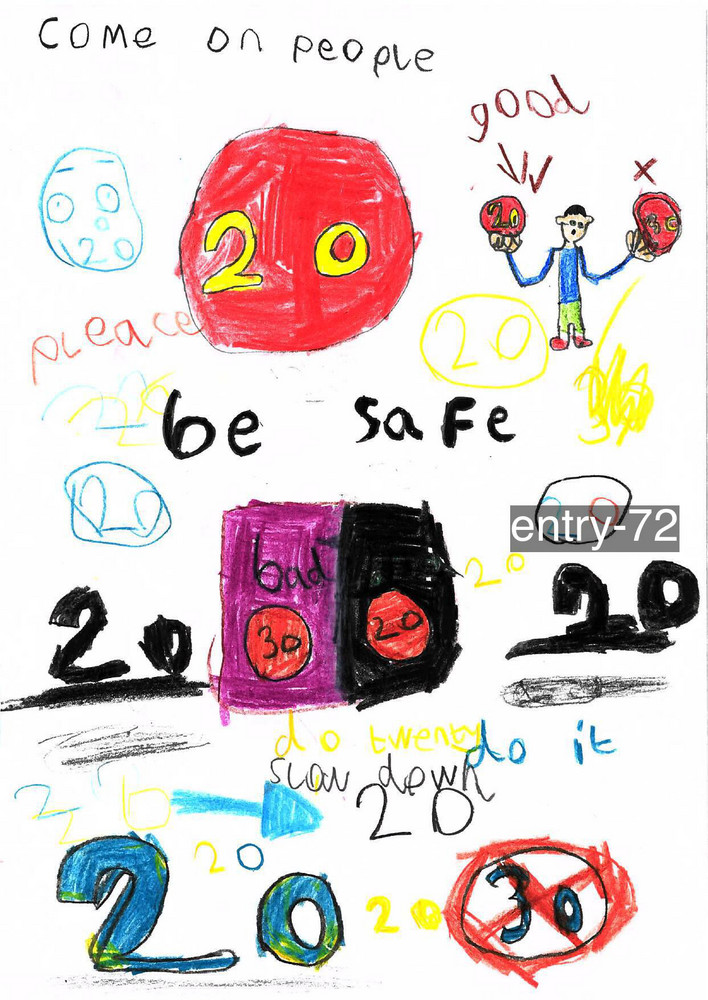 come on people
good
20
20
30
20
pleace
20
be safe
20
20
entry-72
bad
20
20
20
30
20
do twenty do it
slow down
20
20
20
20
30